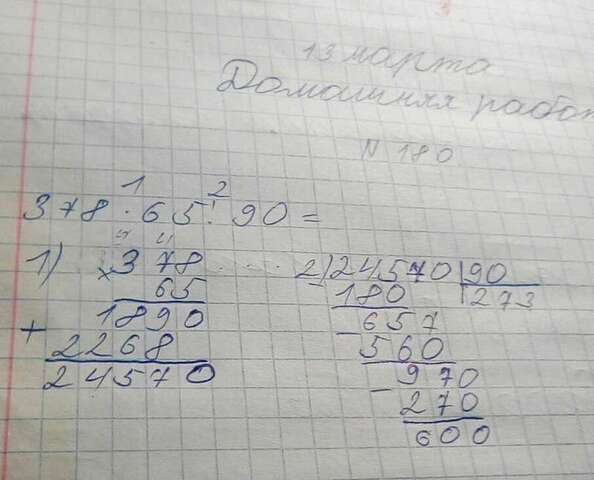 13 марта
Домашняя работ
N 180
1 2
378 · 65 : 90 =
1) × 378
65
+ 1890
2268
24570
2) 24570 | 90
- 180 | 273
657
- 560
970
- 270
600